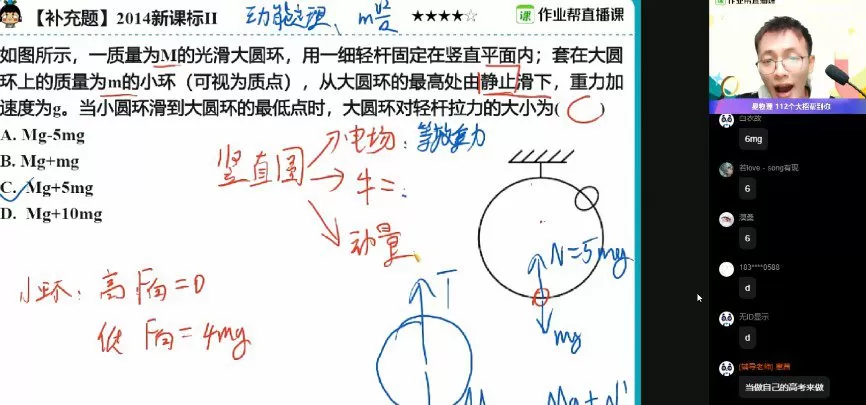 【补充题】2014新课标II
动能定理、mv²/r
★★★★☆
作业帮直播课
如图所示，一质量为M的光滑大圆环，用一细轻杆固定在竖直平面内；套在大圆
环上的质量为m的小环（可视为质点），从大圆环的最高处由静止滑下，重力加
速度为g。当小圆环滑到大圆环的最低点时，大圆环对轻杆拉力的大小为( C )
A. Mg-5mg
B. Mg+mg
C. Mg+5mg
D. Mg+10mg
竖直圆
电场：等效重力
牛二：
动量
小环：高 F向=0
低 F向=4mg
N=5mg
mg
T
Mg+N'
作业帮直播课
6mg
若love - song有现
6
6
183****0588
d
无ID显示
d
当做自己的高考来做